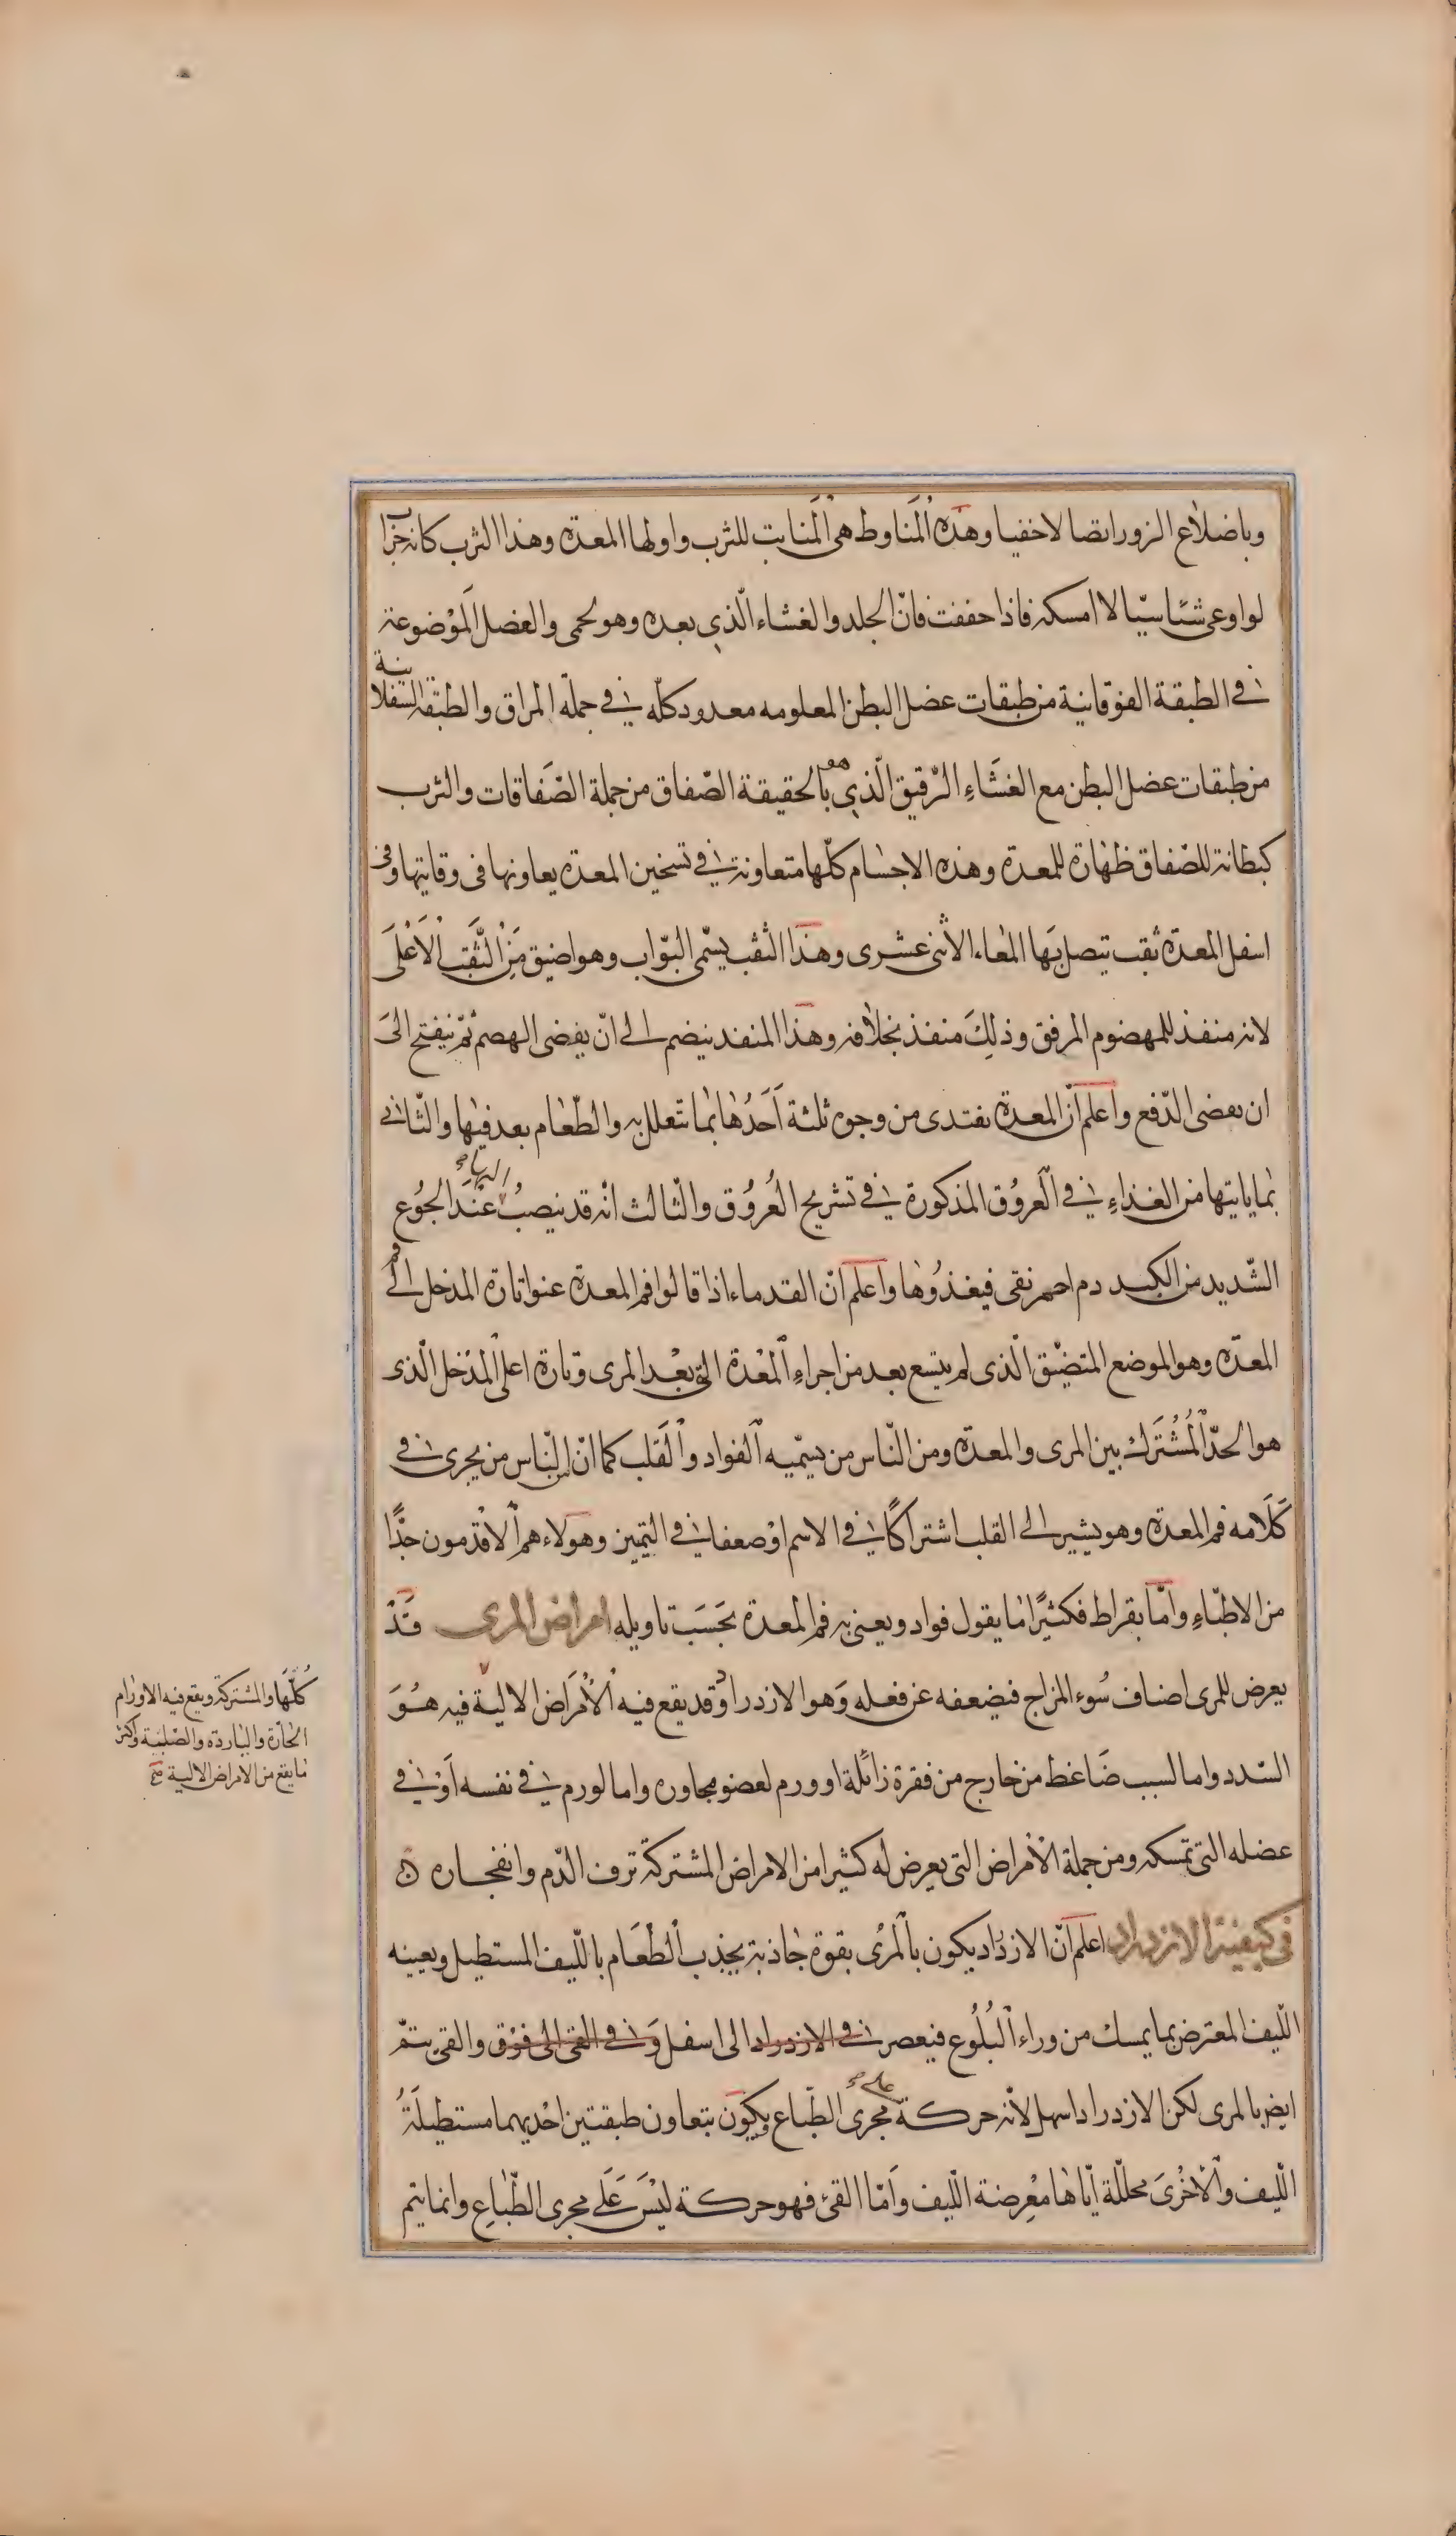 وباضلاع الزور اتصالا خفيا وهذه المناوط هى المنابت للثرب واولها المعدة وهذا الثرب كانه جراب
لو اوعى شئا سيّالا امسكه فاذا حففت فانّ الجلد والغشاء الّذى بعده وهو لحمى والعضل الموضوعة
فى الطبقة الفوقانية من طبقات عضل البطن المعلومه معدود كلّه فى جملة المراق والطبقة السفلانية
من طبقات عضل البطن مع الغشاء الرّقيق الّذى هو بالحقيقة الصّفاق من جملة الصّفاقات والثرب
كبطانة للصّفاق ظهارة للمعدة وهذه الاجسام كلّها متعاونة فى تسخين المعدة يعاونها فى وقايتها وفى
اسفل المعدة ثقب يتصل بها المعاء الاثنى عشرى وهذا الثقب يسمّى البوّاب وهو اضيق من الثّقب الاعلى
لانه منفذ للمهضوم المرفق وذلك منفذ بخلافه وهذا المنفد ينضم الى انّ يفضى الهضم ثمّ ينفتح الى
ان يفضى الدّفع واعلم انّ المعدة يغتدى من وجوه ثلثة احدها بما تتعلل به والطّعام بعد فيها والثّانى
بما ياتيها من الغذاء فى العروق المذكورة فى تشريح العروق والثّالث انّه قد ينصبّ اليها عند الجوع
الشّديد من الكبد دم احمر نقى فيغذوها واعلم انّ القدماء اذا قالوا فم المعدة عنوا تارة المدخل الى فم
المعدّه وهو الموضع المتضيّق الّذى لم يتسع بعد من اجراء المعدة الّتى بعد المرى وتارة اعلى المدخل الّذى
هو الحدّ المشترك بين المرى والمعدة ومن النّاس من يسمّيه الفواد والقلب كما انّ من النّاس من يجرى فى
كلامه فم المعدة وهو يشير الى القلب اشتراكًا فى الاسم او ضعفا فى التميز وهولاء هم الاقدمون جدًّا
من الاطبّاء وامّا بقراط فكثيرًا ما يقول فواد ويعنى به فم المعدة بحسب تاويله امراض المرى قد
يعرض للمرى اصناف سوء المزاج فيضعفه عن فعله وهو الازدراد وقد يقع فيه الامراض الالية فيه هو
كلّها والمشتركة ويقع فيه الاورام
الحارّة والباردة والصّلبة واكثر
ما يقع من الامراض الالية صح
السّدد واما لسبب ضاغط من خارج من فقرة زائلة او ورم لعضو مجاوره واما لورم فى نفسه او فى
عضله التى تمسكه ومن جملة الامراض التى يعرض له كثيرا من الامراض المشتركة نزف الدّم وانفجاره
فى كيفية الازدراد اعلم انّ الازدراد يكون بالمرى بقوة جاذبة يجذب الطّعام باللّيف المستطيل ويعينه
اللّيف المعترض بما يمسك من وراء البلوع فيعصر فى الازدراد الى اسفل وفى القى الى فوق والقى يتمّ
ايض بالمرى لكن الازدراد اسهل لانّه حركة على مجرى الطّباع ويكون بتعاون طبقتين احديهما مستطيلة
اللّيف والاخرى محللّة ايّاها معرضة اللّيف وامّا القئ فهو حركة ليس على مجرى الطّباع وانما يتم